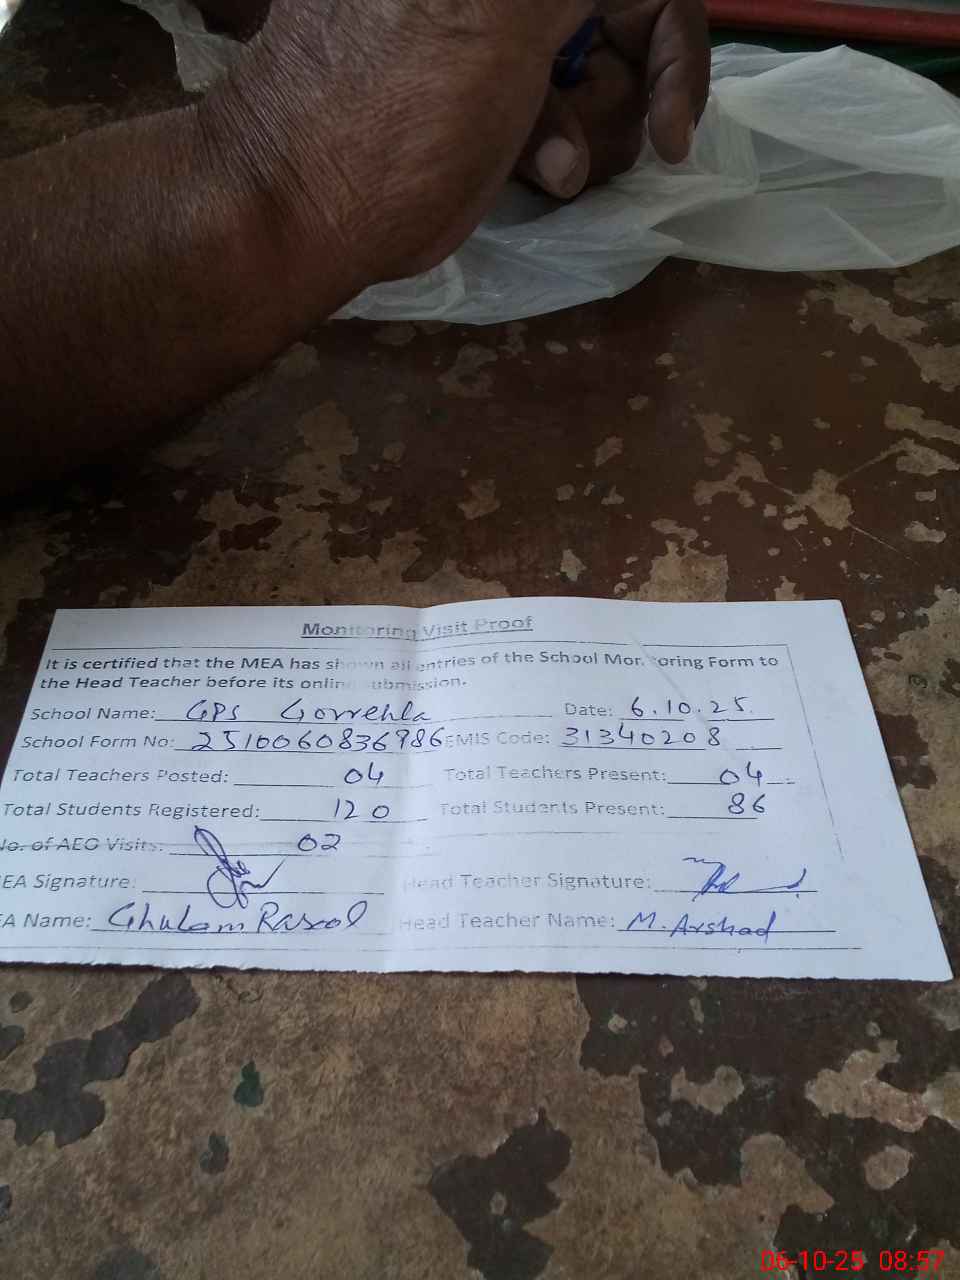 Monitoring Visit Proof
It is certified that the MEA has shown all entries of the School Monitoring Form to
the Head Teacher before its online submission.
School Name: GPS Gorrehla Date: 6.10.25.
School Form No: 2510060836986 EMIS Code: 31340208
Total Teachers Posted: 04 Total Teachers Present: 04
Total Students Registered: 120 Total Students Present: 86
No. of AEO Visits: 02
EA Signature: Head Teacher Signature:
EA Name: Ghulam Rasool Head Teacher Name: M. Arshad
06-10-25 08:57